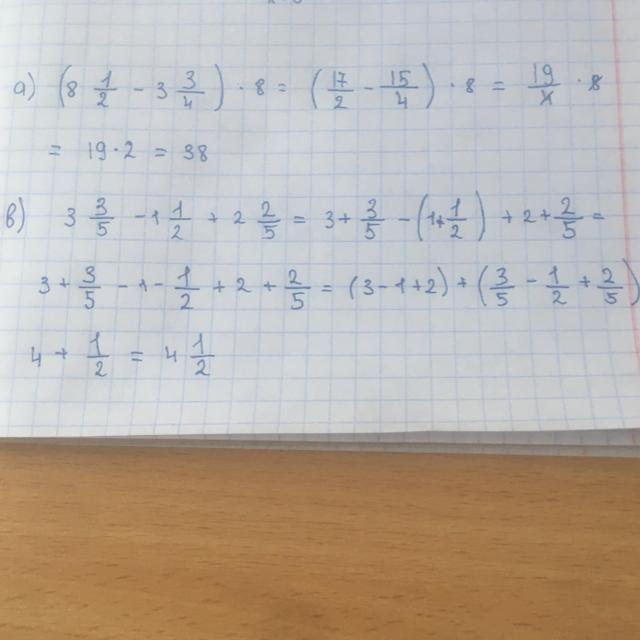 a) (8 1/2 - 3 3/4) · 8 = (17/2 - 15/4) · 8 = 19/4 · 8
= 19 · 2 = 38
в) 3 3/5 - 1 1/2 + 2 2/5 = 3 + 3/5 - (1 + 1/2) + 2 + 2/5 =
3 + 3/5 - 1 - 1/2 + 2 + 2/5 = (3 - 1 + 2) + (3/5 - 1/2 + 2/5)
4 + 1/2 = 4 1/2